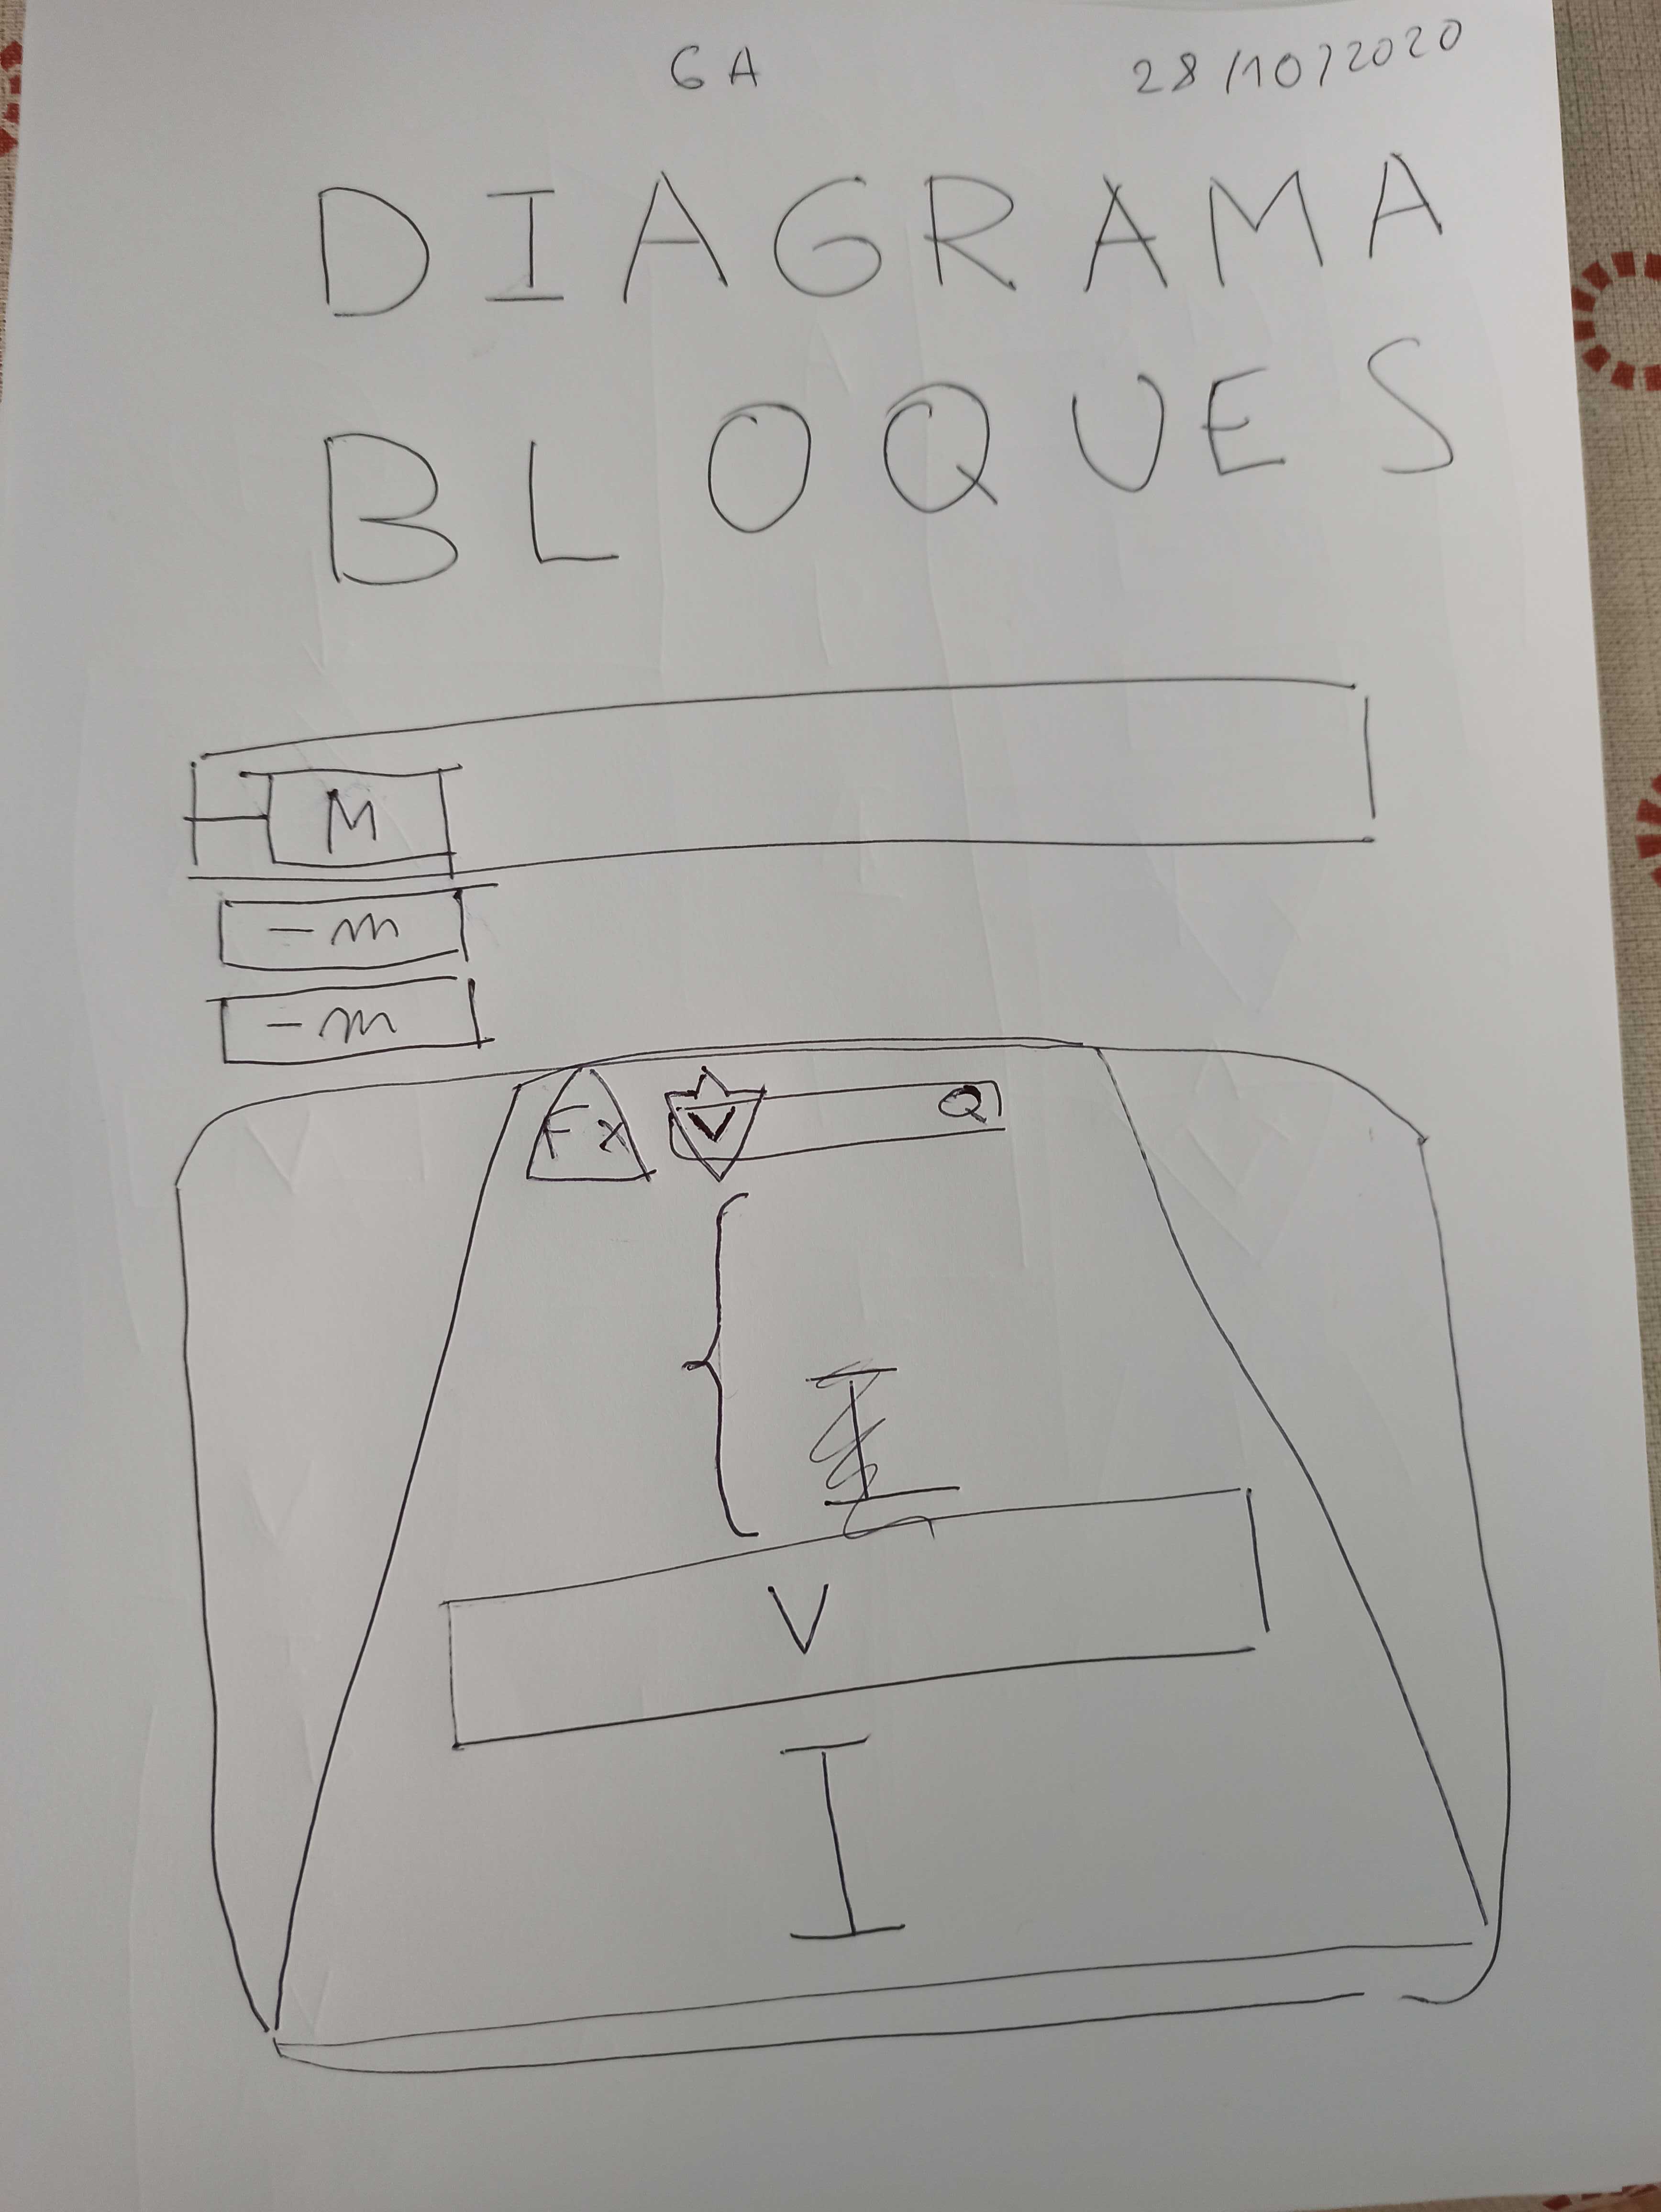 GA 28/10/2020
DIAGRAMA
BLOQUES
M
- m
- m
Fx V Q
I
V
I